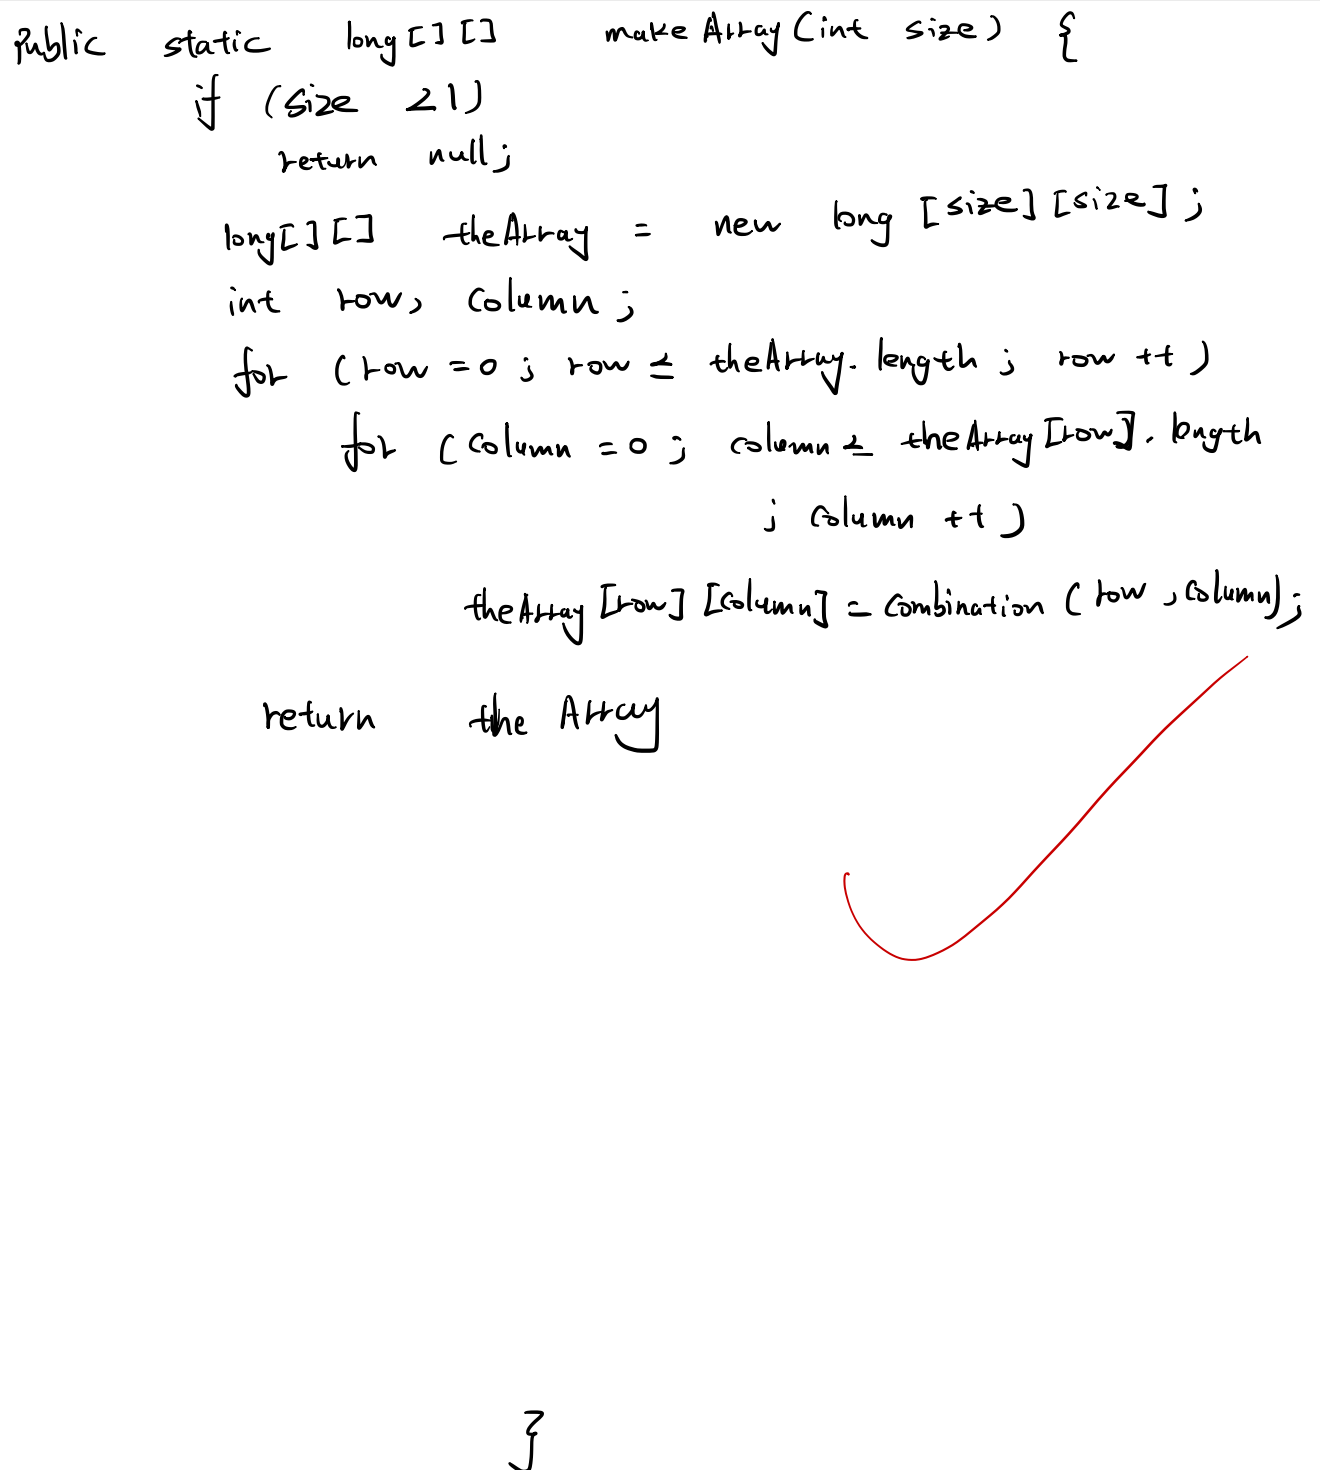 Public static long[][] makeArray(int size) {
if (size <1)
return null;
long[][] theArray = new long [size][size];
int row, column;
for (row =0; row ≤ theArray.length; row ++)
for (column =0; column ≤ theArray[row].length
; column ++)
theArray[row][column] = combination (row, column);
return the Array
}